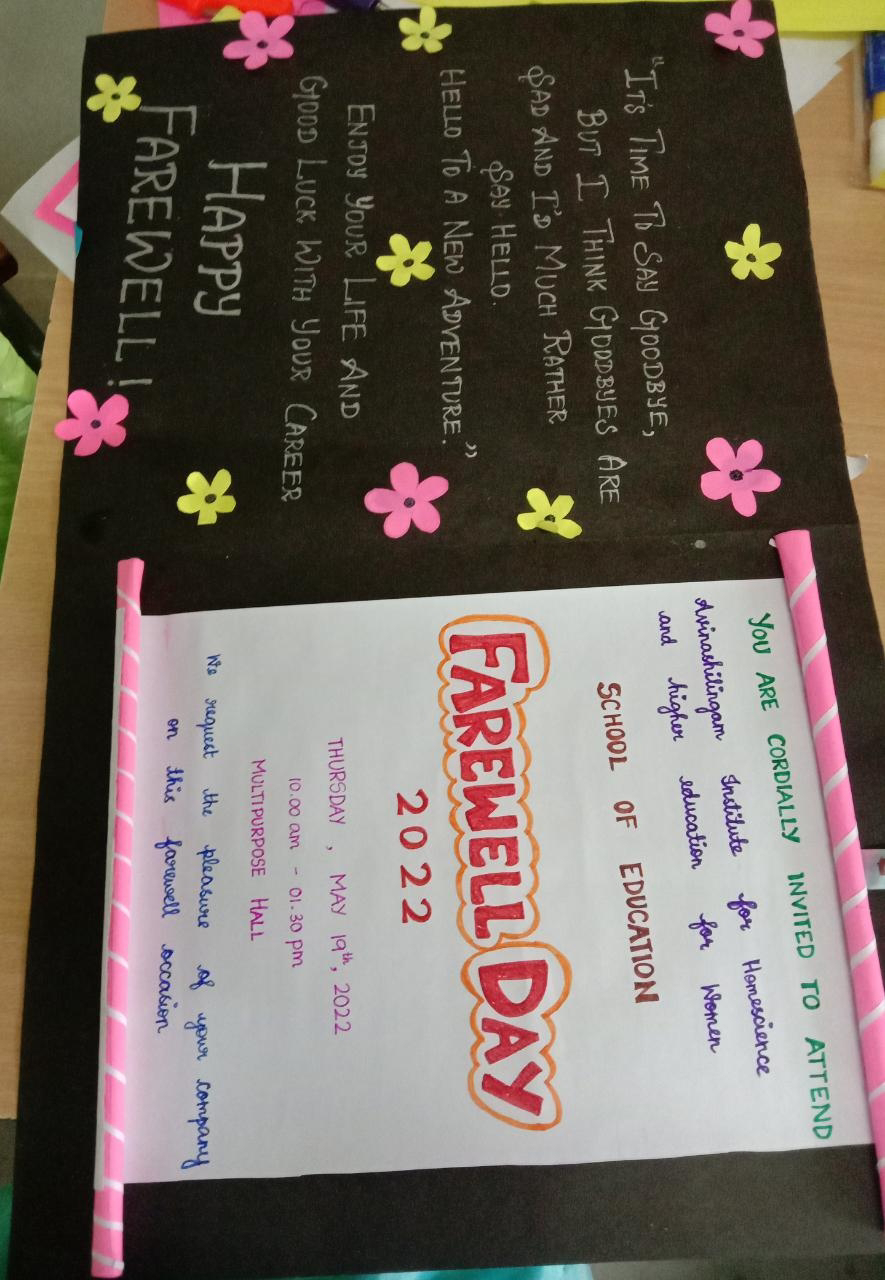 "IT'S TIME TO SAY GOODBYE,
BUT I THINK GOODBYES ARE
SAD AND I'D MUCH RATHER
SAY HELLO.
HELLO TO A NEW ADVENTURE."
ENJOY YOUR LIFE AND
GOOD LUCK WITH YOUR CAREER
HAPPY
FAREWELL!
YOU ARE CORDIALLY INVITED TO ATTEND
Avinashilingam Institute for Homescience
and higher education for Women
SCHOOL OF EDUCATION
FAREWELL DAY
2022
THURSDAY, MAY 19th, 2022
10.00 am - 01.30 pm
MULTIPURPOSE HALL
We request the pleasure of your company
on this farewell occasion